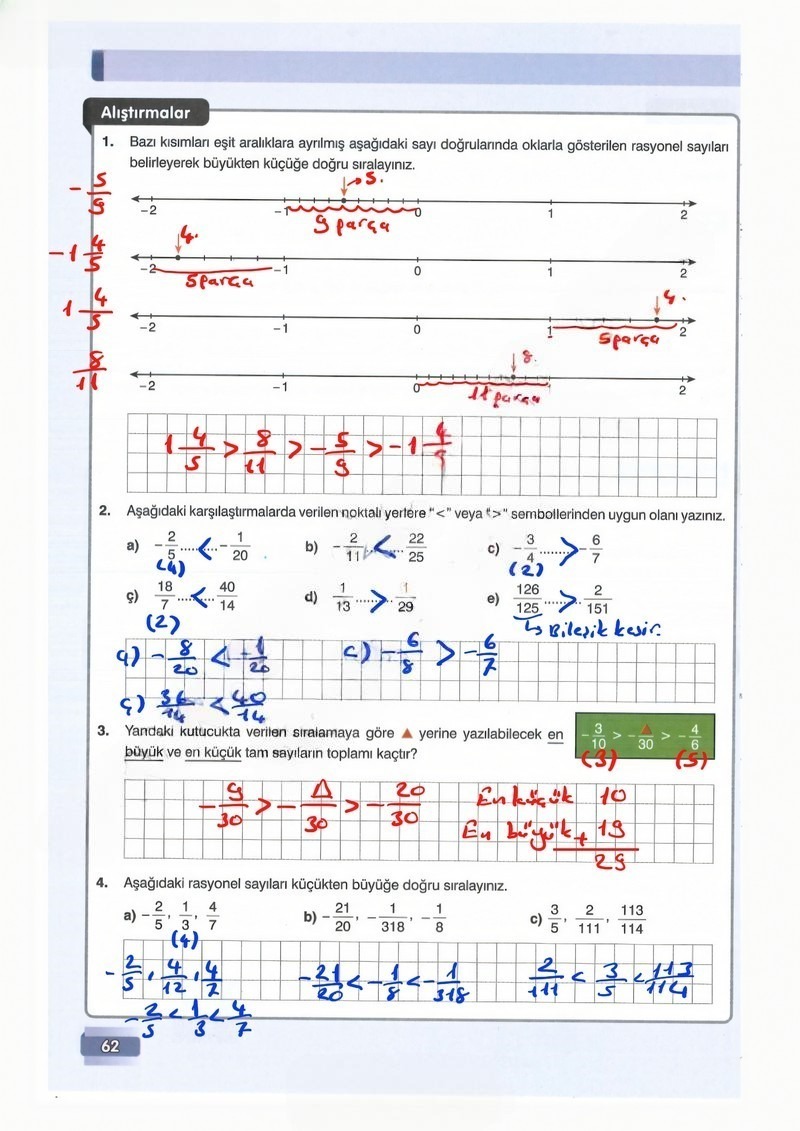 Alıştırmalar
1. Bazı kısımları eşit aralıklara ayrılmış aşağıdaki sayı doğrularında oklarla gösterilen rasyonel sayıları
belirleyerek büyükten küçüğe doğru sıralayınız.
-5/9 → 5.
-2 -1 0 1 2
9 parça
-1 4/5 4.
-2 -1 0 1 2
5 parça
1 4/5 4.
-2 -1 0 1 2
5 parça
8/11 8.
-2 -1 0 1 2
11 parça
1 4/5 > 8/11 > -5/9 > -1 4/5
2. Aşağıdaki karşılaştırmalarda verilen noktalı yerlere "<" veya ">" sembollerinden uygun olanı yazınız.
a) -2/5 ...<... -1/20 b) -2/11 ...<... 22/25 c) -3/4 ...>... -6/7
(4) (2)
ç) 18/7 ...<... 40/14 d) 1/13 ...>... 1/29 e) 126/125 ...>... 2/151
(2) ↳ Bileşik kesir.
a) -8/20 < -1/20 c) -6/8 > -6/7
ç) 36/14 < 40/14
3. Yandaki kutucukta verilen sıralamaya göre ▲ yerine yazılabilecek en
büyük ve en küçük tam sayıların toplamı kaçtır?
-3/10 > -▲/30 > -4/6
(3) (5)
-9/30 > -Δ/30 > -20/30 En küçük 10
En büyük + 19
29
4. Aşağıdaki rasyonel sayıları küçükten büyüğe doğru sıralayınız.
a) -2/5, 1/3, 4/7 b) -21/20, -1/318, -1/8 c) 3/5, 2/111, 113/114
(4)
-2/5, 4/12, 4/7 -21/20 < -1/8 < -1/318 2/111 < 3/5 < 113/114
-2/5 < 1/3 < 4/7
62